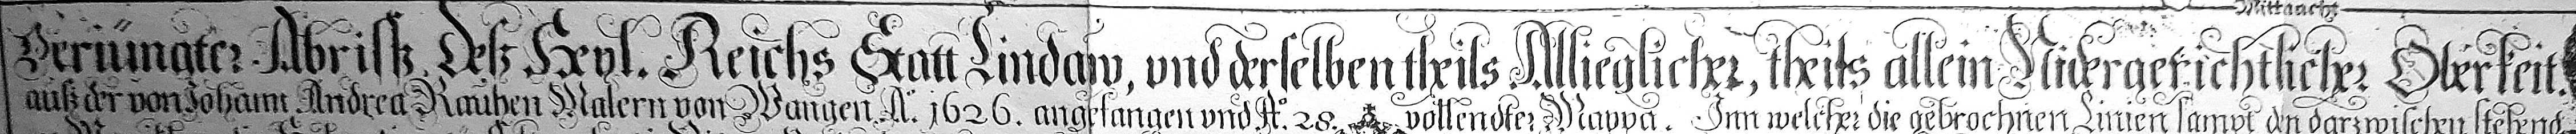 Mittnacht
Verjüngter Abrisß, Deß Heyl. Reichs Statt Lindaw, vnd derselben theils Allieglicher, theils allein Nidergerichtlicher Oberkeit.
auß der von Johann Andrea Rauhen Malern von Wangen A.º 1626. angefangen vnd Aº. 28. vollendter Mappa. Inn welcher die gebrochnen Linien sampt den darzwischen stehend